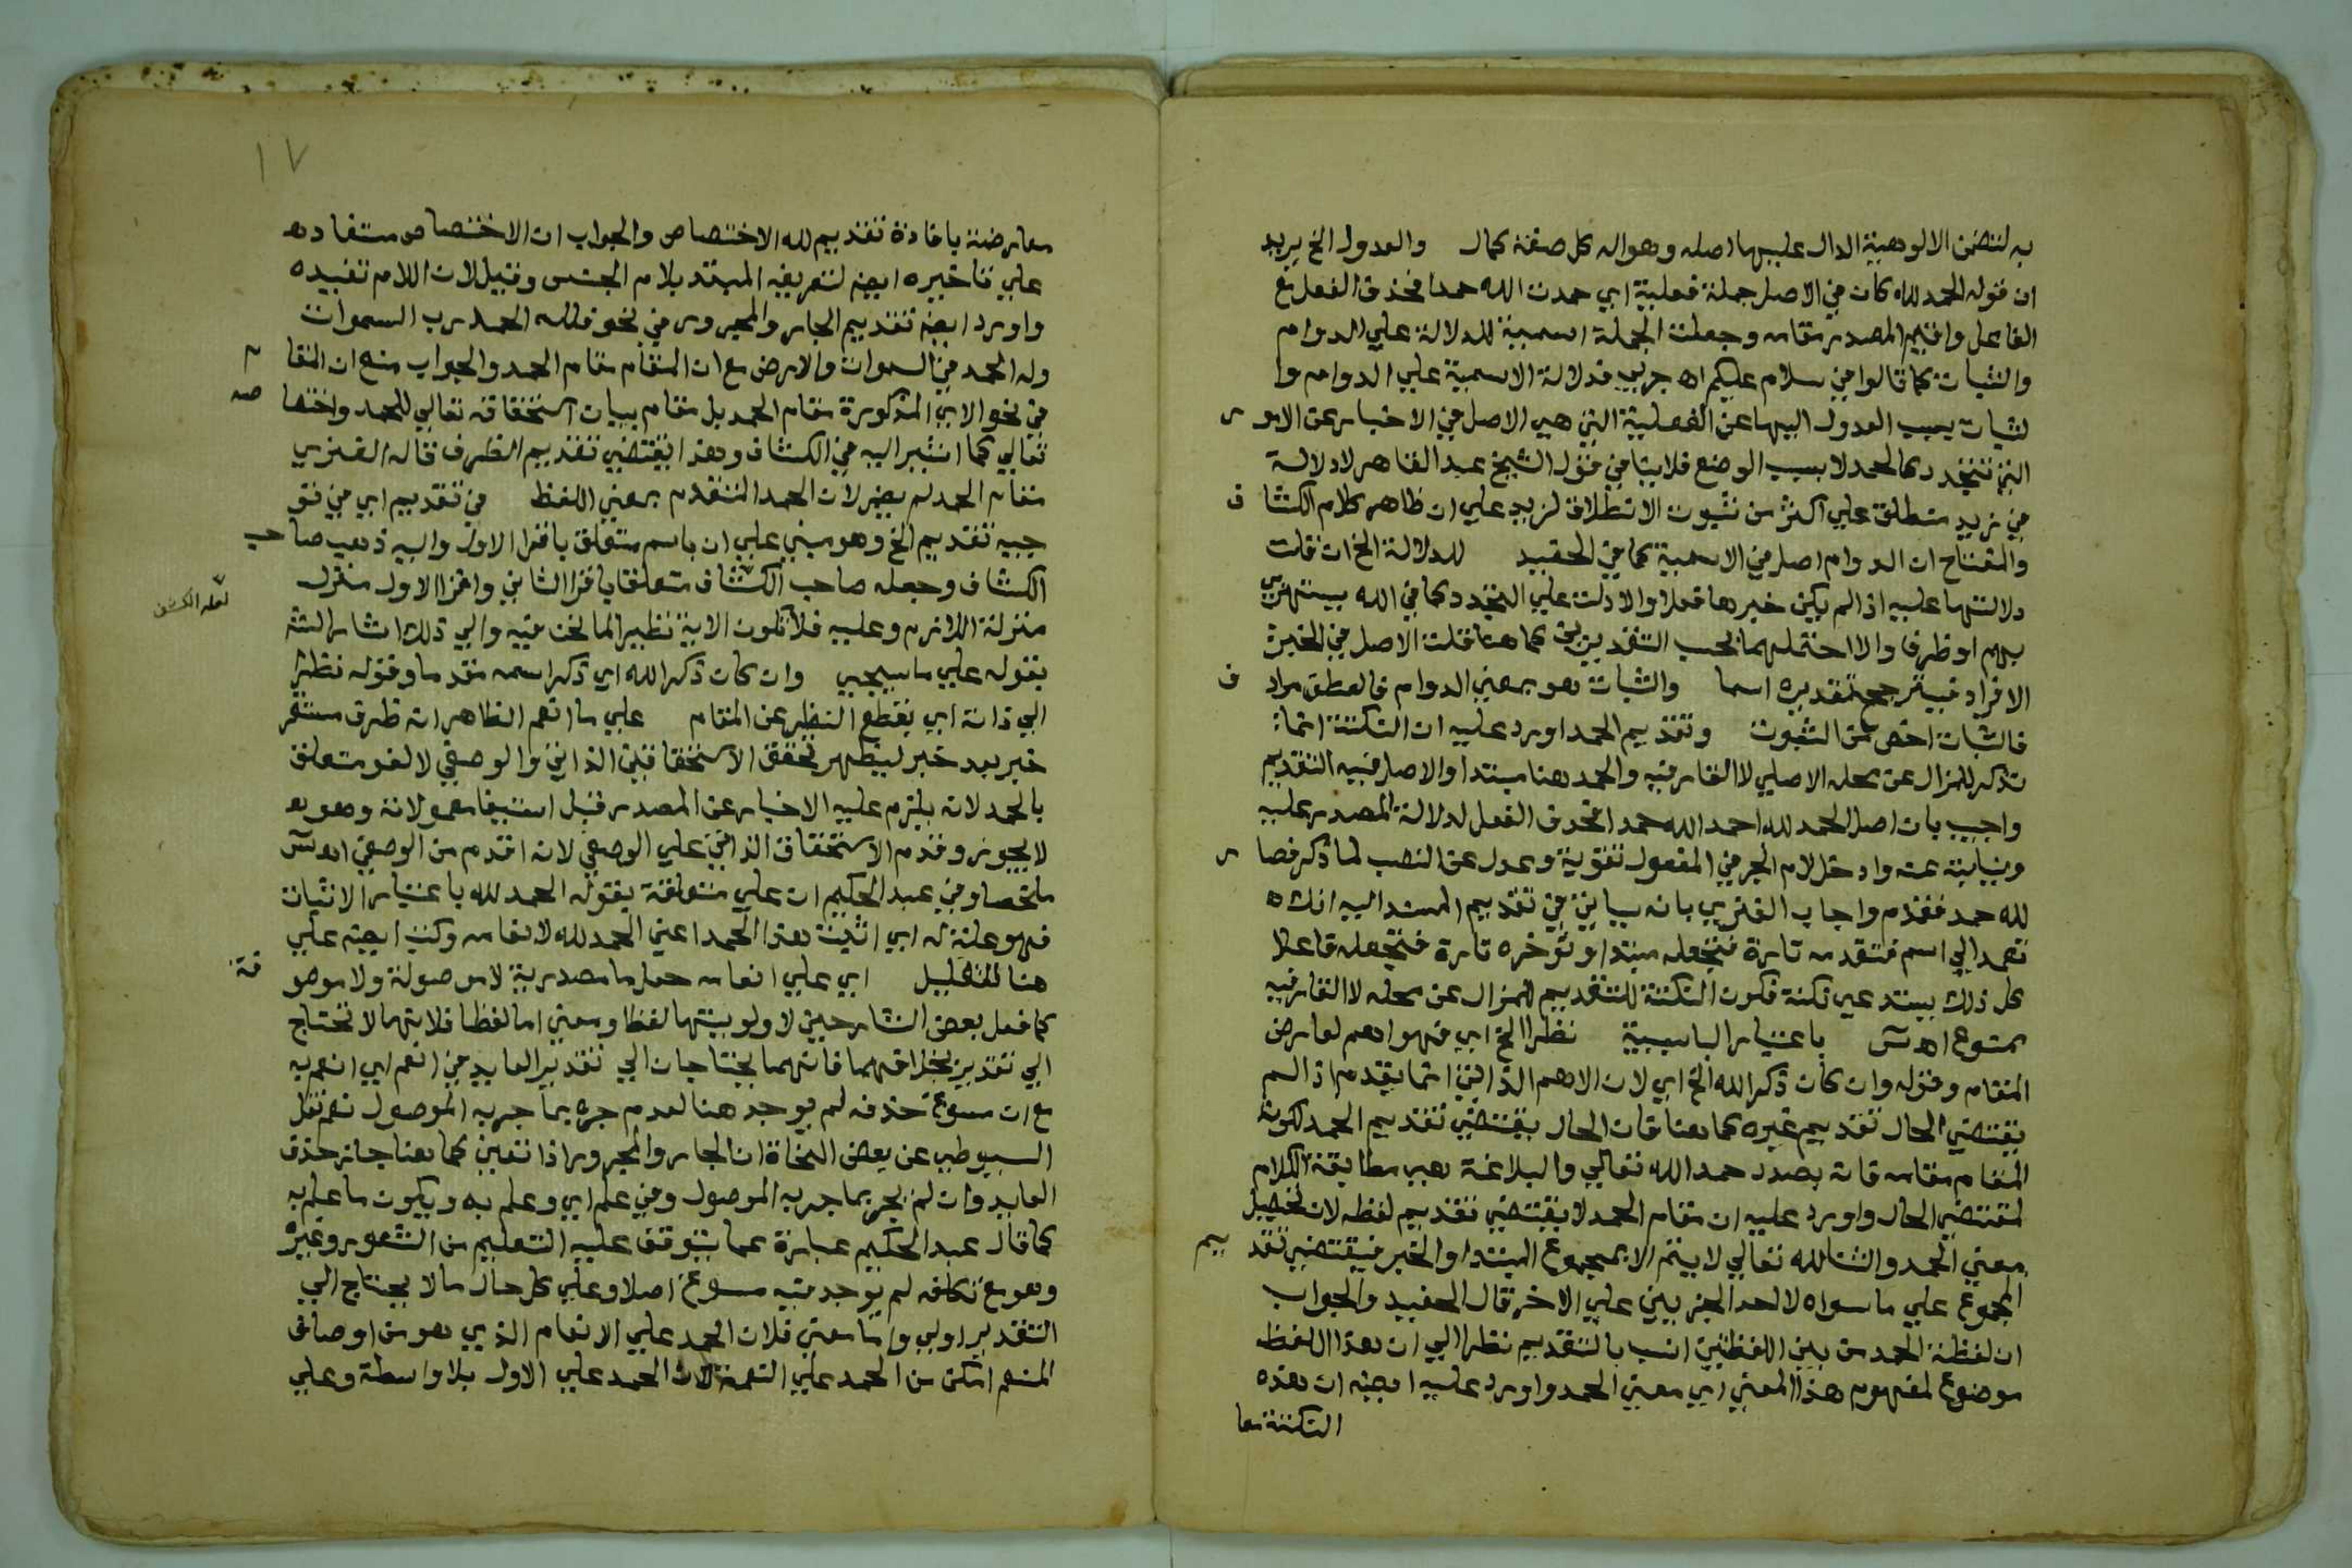 به لتضمن الالوهية الدال عليها اصله وهو اله كل صفة كمال والعدول الخ يريد
ان قوله الحمد لله كان في الاصل جملة فعلية اي حمدت الله حمدا فحذف الفعل مع
الفاعل واقيم المصدر مقامه وجعلت الجملة اسمية للدلالة علي الدوام
والثبات كما قالوا في سلام عليكم اه جربي فدلالة الاسمية علي الدوام وا
لثبات بسبب العدول اليها عن الفعلية التي هي الاصل في الاخبار عن الامور
التي تتجدد كالحمد لا بسبب الوضع فلا ينافي قول الشيخ عبد القاهر لا دلالة
في زيد منطلق علي اكثر من ثبوت الانطلاق لزيد علي ان ظاهر كلام الكشاف
والمفتاح ان الدوام اصل في الاسمية كما في الحفيد للدلالة الخ ان قلت
دلالتها عليه اذا لم يكن خبرها فعلا والا دلت علي التجدد كما في الله يستهزئ
بهم او ظرفا والا احتملهما بحسب التقديرين كما هنا قلت الاصل في الخبر
الافراد فيترجح تقديره اسما والثبات هو بمعني الدوام فالعطف مرادف
فالثبات اخص من الثبوت وتقديم الحمد اورد عليه ان النكتة انما
تذكر للمزال عن محله الاصلي لا القار فيه والحمد هنا مبتدا والاصل فيه التقديم
واجيب بان اصل الحمد لله احمد الله حمدا فحذف الفعل لدلالة المصدر عليه
ونيابته عنه وادخل لام الجر في المفعول تقوية وعدل عن النصب لما ذكر فصار
لله حمد فقدم واجاب الفنري بانه سياتي في تقديم المسند اليه انك
تعمد الي اسم فتقدمه تارة فتجعله مبتدا وتؤخره تارة فتجعله فاعلا
كل ذلك يستدعي نكتة فكون النكتة للتقديم للمزال عن محله لا القار فيه
ممنوع اه س باعتبار البا سببية نظرا الخ اي فهو اهم لعارض
المقام وقوله وان كان ذكر الله الخ اي لان الاهم الذاتي انما يقدم اذا لم
يقتضي الحال تقديم غيره كما هنا فان الحال يقتضي تقديم الحمد لكون
المقام مقامه فانه بصدد حمد الله تعالي والبلاغة هي مطابقة الكلام
لمقتضي الحال واورد عليه ان مقام الحمد لا يقتضي تقديم لفظه لان تحصيل
معني الحمد والثنا لله تعالي لا يتم الا بمجموع المبتدا والخبر فيقتضي تقديم
المجموع علي ما سواه لا احد الجزيين علي الاخر قال الحفيد والجواب
ان لفظة الحمد من بين اللفظين انسب بالتقديم نظرا الي ان هذا اللفظ
موضوع لمفهوم هذا المعني اي معني الحمد واورد عليه ايضا ان هذه
النكتة معا
١٧
معارضة بافادة تقديم لله الاختصاص والجواب ان الاختصاص مستفاد
علي تاخيره ايضا لتعريف المبتد بلام الجنس وقيل لان اللام تفيده
واورد ايضا تقديم الجار والمجرور في نحو فلله الحمد رب السموات
وله الحمد في السموات والارض مع ان المقام مقام الحمد والجواب منع ان المقام
في نحو الاي المذكورة مقام الحمد بل مقام بيان استحقاقه تعالي للحمد واختصاصه
تعالي كما اشير اليه في الكشاف وهذا يقتضي تقديم الظرف قاله الفنري
مقام الحمد لم يضر لان الحمد المتقدم بمعني اللفظ في تقديم اي في تو
جيه تقديم الخ وهو مبني علي ان باسم متعلق باقرا الاول واليه ذهب صاحب
الكشاف وجعله صاحب الكشاف متعلقا باقرا الثاني واقرا الاول منزل
لعله الكشف
منزلة اللازم وعليه فلا تكون الاية نظير المانحن فيه والي ذلك اشار الش
بقوله علي ما سيجيي وان كان ذكر الله اي ذكر اسمه مقدما وقوله نظرا
الي ذاته اي بقطع النظر عن المقام علي ما انعم الظاهر انه ظرف مستقر
خبر بعد خبر ليظهر تحقق الاستحقاقين الذاتي والوصفي لا لغو متعلق
بالحمد لانه يلزم عليه الاخبار عن المصدر قبل استيفا معمولاته وهو
لا يجوز وقدم الاستحقاق الذاتي علي الوصفي لانه اقدم من الوصفي اه س
ملخصا وفي عبد الحكيم ان علي متعلقة بقوله الحمد لله باعتبار الاثبات
فهو علة له اي اثبت هذا الحمد اعني الحمد لله لانعامه وكتب ايضا علي
هنا للتعليل اي علي انعامه جعل ما مصدرية لا موصولة ولا موصوفة
كما فعل بعض الشارحين لاولويتها لفظا ومعني اما لفظا فلانها لا تحتاج
الي تقدير بخلافهما فانهما يحتاجان الي تقدير العايد في انعم اي انعم به
مع ان مسوغ حذفه لم يوجد هنا لعدم جره بما جر به الموصول نعم نقل
السيوطي عن بعض النحاة ان الجار والمجرور اذا تعين كما هنا جاز حذف
العايد وان لم يجر بما جر به الموصول وفي علم اي وعلم به ويكون ما علم به
كما قال عبد الحكيم عبارة عما يتوقف عليه التعليم من الشعور وغيره
وهو مع تكلفه لم يوجد فيه مسوغ اصلا وعلي كل حال ما لا يحتاج الي
التقدير اولي واما معني فلان الحمد علي الانعام الذي هو من اوصاف
المنعم امكن من الحمد علي النعمة لان الحمد علي الاول بلا واسطة وعلي